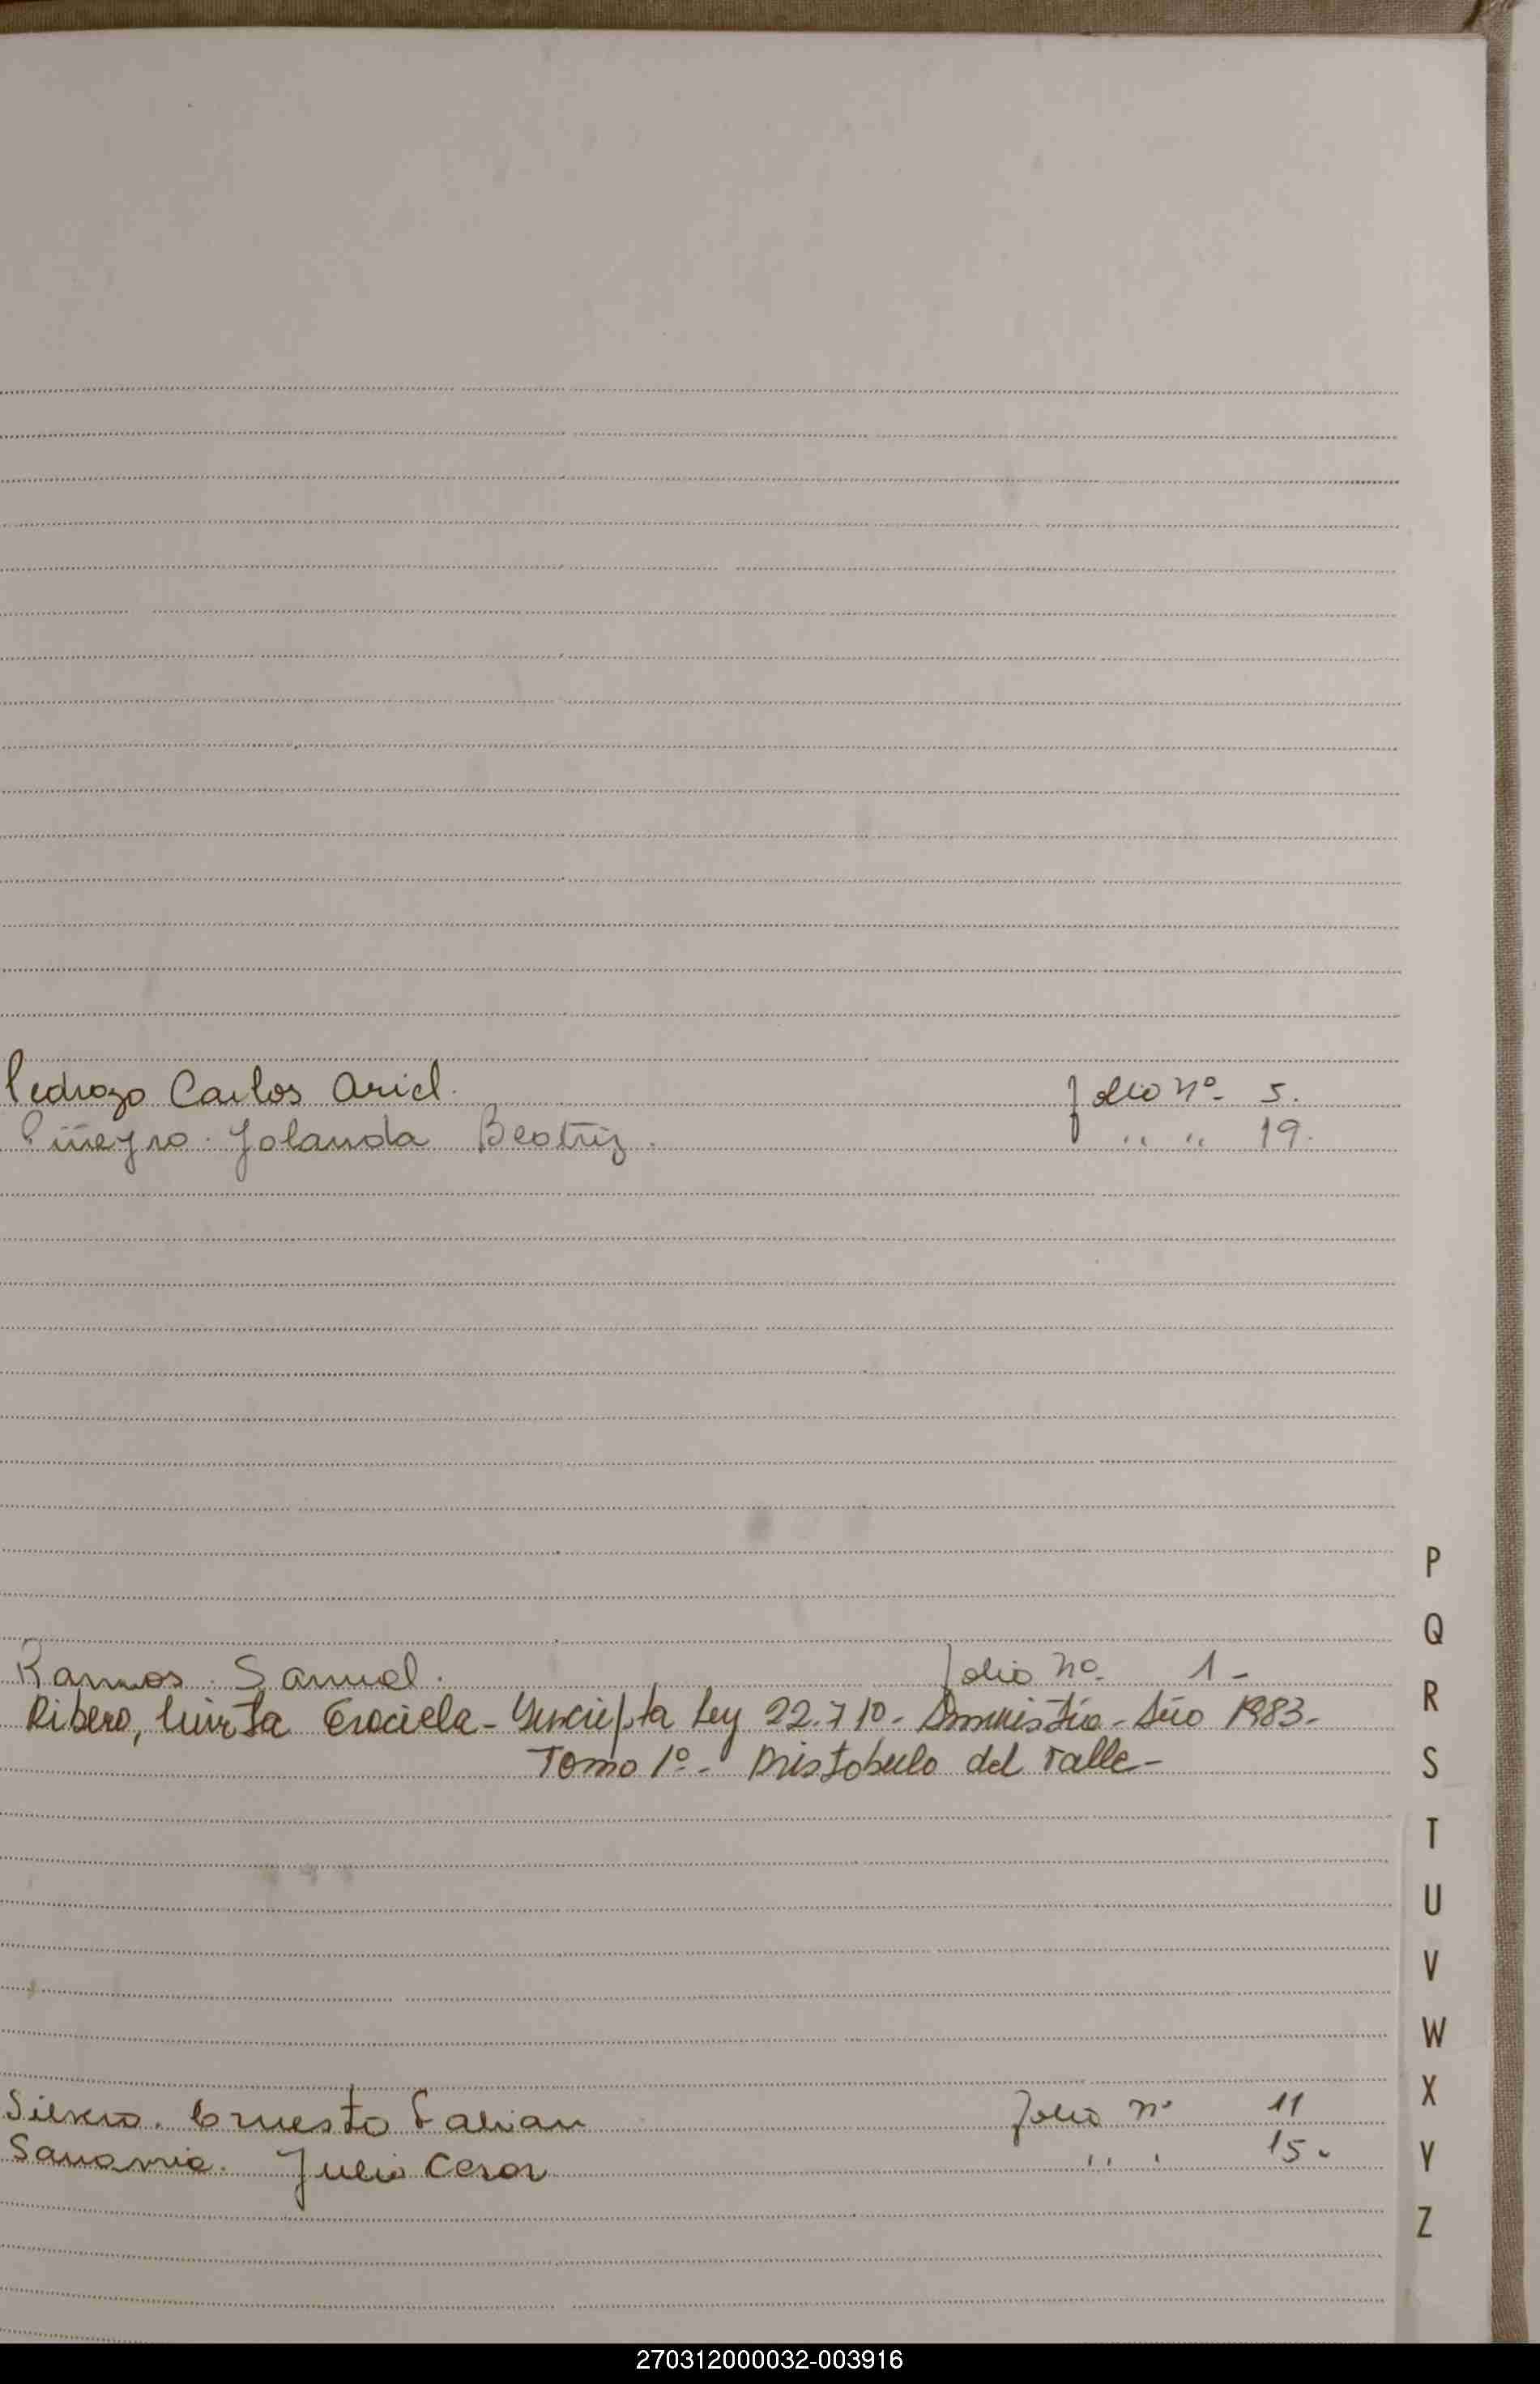 Pedrozo Carlos Ariel. folio nº 5.
Piñeyro. Yolanda Beatriz. " " 19.
P
Q
Ramos. Samuel. folio nº 1-
R
Ribero, Mirta Graciela - Inscripta Ley 22.710. Amnistía - Año 1983.
Tomo 1º. Aristobulo del Valle-
S
T
U
V
W
X
Ernesto Fabian folio nº 11
Sanamria. Julio Cesar " " 15.
Y
Z
270312000032-003916